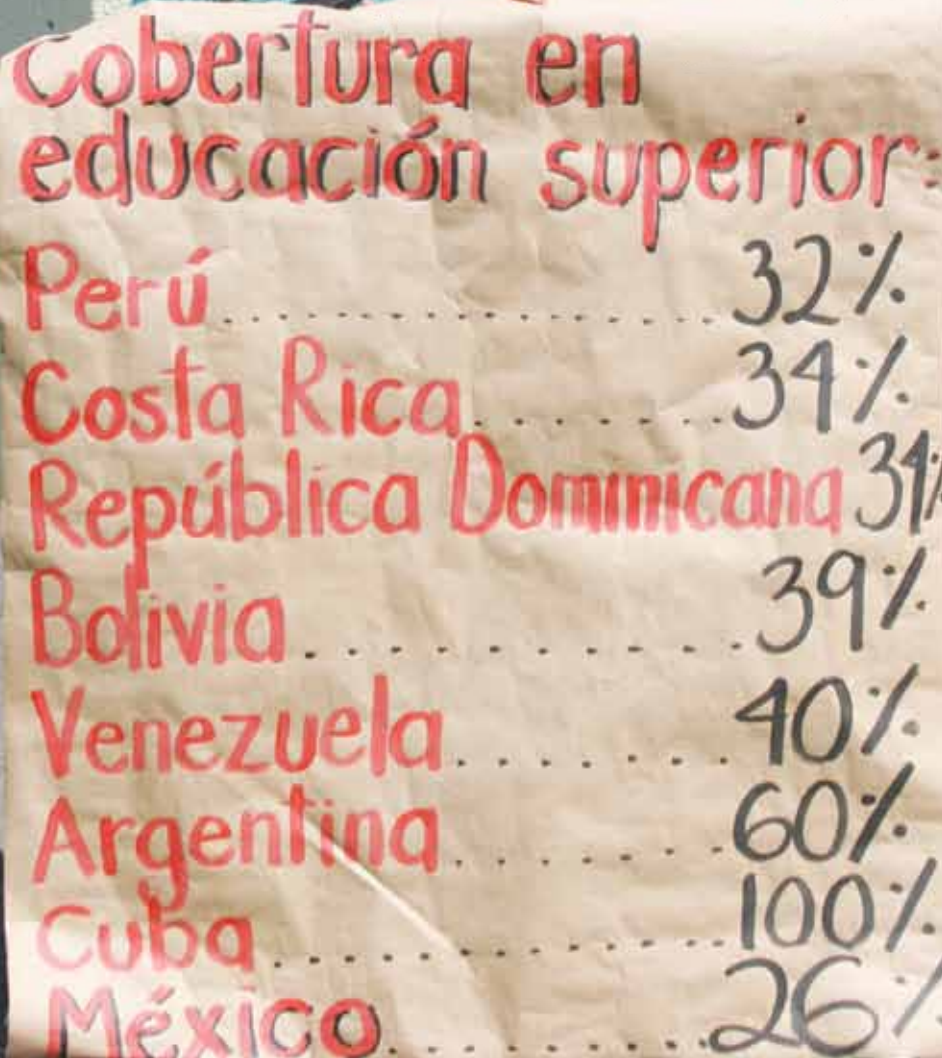 Cobertura en
educación superior:
Perú..................32%
Costa Rica..........34%
República Dominicana 34%
Bolivia................39%
Venezuela..........40%
Argentina..........60%
Cuba..................100%
México...............26%